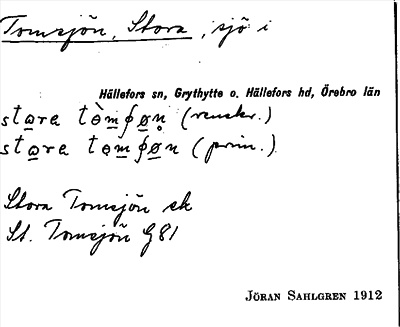 Tomsjön, Stora, sjö i
Hällefors sn, Grythytte o. Hällefors hd, Örebro län
(renskr.)
(prim.)
Stora Tomsjön ek
St. Tomsjön G81
JÖRAN SAHLGREN 1912